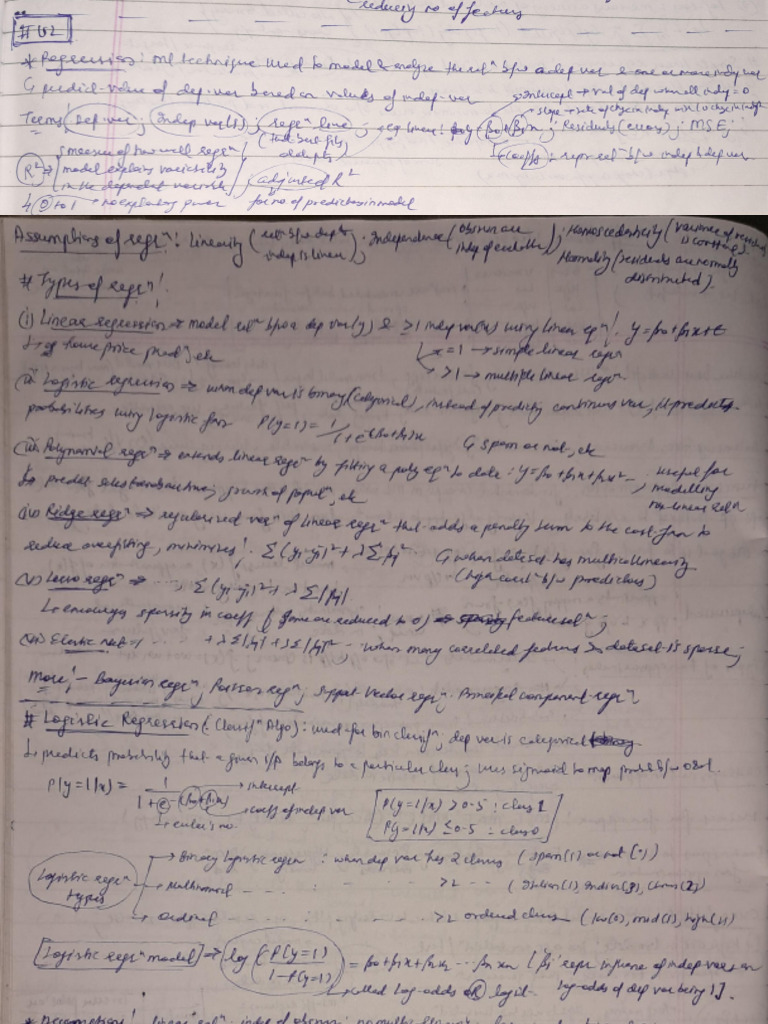 reducing no of features
# U2
* Regression: ML technique used to model & analyze the relⁿ b/w a dep var & one or more indep var
↳ predict value of dep var based on values of indep var
→ intercept → val of dep when all indep = 0
→ slope → rate of
Terms: dep var; indep var(s); regⁿ line (that best fits data pts); eq linear: y = β0 + β1x; Residuals (errors); MSE;
↳ (coeffs): repr relⁿ b/w indep & dep var
R² → measure of how well regrⁿ model explains variability in the dependent variable; adjusted R²
↳ 0 to 1 → no explanatory power for no of predictors in model
Assumptions of regrⁿ: Linearity (relⁿ b/w dep & indep is linear); Independence (obsvn are indep of each other); Homoscedasticity (variance of residuals is constant);
Normality (residuals are normally distributed).
# Types of regrⁿ:
(i) Linear regression → model relⁿ b/w a dep var(y) & ≥1 indep var(x) using linear eqⁿ: y = β0 + β1x + ε
↳ eg house price predⁿ, etc
x = 1 → simple linear regrⁿ
>1 → multiple linear regrⁿ
(ii) Logistic regression → when dep var is binary (categorical), instead of predictg continuous var, it predicts
probabilities using logistic fxn P(y=1) = 1/1+e-(β0+β1x) ↳ spam or not, etc
(iii) Polynomial regrⁿ → extends linear regrⁿ by fitting a poly eqⁿ to data: y = β0 + β1x + β2x² ..., useful for modelling non-linear relⁿ
↳ predict sales trends over time, growth of populⁿ, etc
(iv) Ridge regrⁿ → regularized verⁿ of linear regrⁿ that adds a penalty term to the cost fxn to
reduce overfitting, minimizes: Σ(yi-ŷi)² + λΣβj² ↳ when dataset has multicollinearity
(high corrlⁿ b/w predictors)
(v) Lasso regrⁿ → ... Σ(yi-ŷi)² + λΣ|βj|
↳ encourages sparsity in coeff (some are reduced to 0) feature selⁿ;
(vi) Elastic net → ... + λΣ|βj| + λΣ|βj|²; when many correlated features > dataset is sparse;
More: - Bayesian regrⁿ, Poisson regⁿ, Support Vector regrⁿ, Principal component regrⁿ
# Logistic Regression (Classfⁿ Algo): used for bin classifⁿ, dep var is categorical
↳ predicts probability that a given i/p belongs to a particular class; uses sigmoid to map prob b/w 0 & 1.
P(y=1|x) = 1/1+e-(β0+β1x) → intercept
→ coeff of indep var
↳ euler's no
P(y=1|x) > 0.5 : class 1
P(y=1|x) ≤ 0.5 : class 0
Logistic regrⁿ types
→ Binary logistic regrn : when dep var has 2 classes (spam(1) or not (0))
→ Multinomial - - - - : - - - >2 - - - (Italian(1), Indian(3), Chinese(2))
→ Ordinal - - - - : - - - >2 ordered classes (low(0), med(1), high(2))
[Logistic regrⁿ model] → log (P(y=1)/1-P(y=1)) = β0 + β1x + β2x2 ... βnxn [βj repr influence of indep var on
↳ called log-odds OR logit. log-odds of dep var being 1].